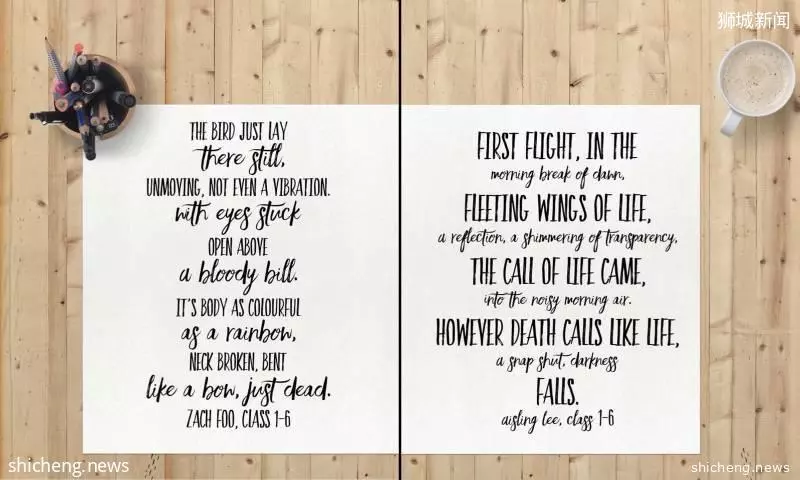 狮城新闻
shicheng.news
THE BIRD JUST LAY
there still,
UNMOVING, NOT EVEN A VIBRATION.
with eyes stuck
OPEN ABOVE
a bloody bill.
IT'S BODY AS COLOURFUL
as a rainbow,
NECK BROKEN, BENT
like a bow, just dead.
ZACH FOO, CLASS 1-6
FIRST FLIGHT, IN THE
morning break of dawn,
FLEETING WINGS OF LIFE,
a reflection, a shimmering of transparency,
THE CALL OF LIFE CAME,
into the noisy morning air.
HOWEVER DEATH CALLS LIKE LIFE,
a snap shut, darkness
FALLS.
aisling lee, class 1-6
shicheng.news
shicheng.news